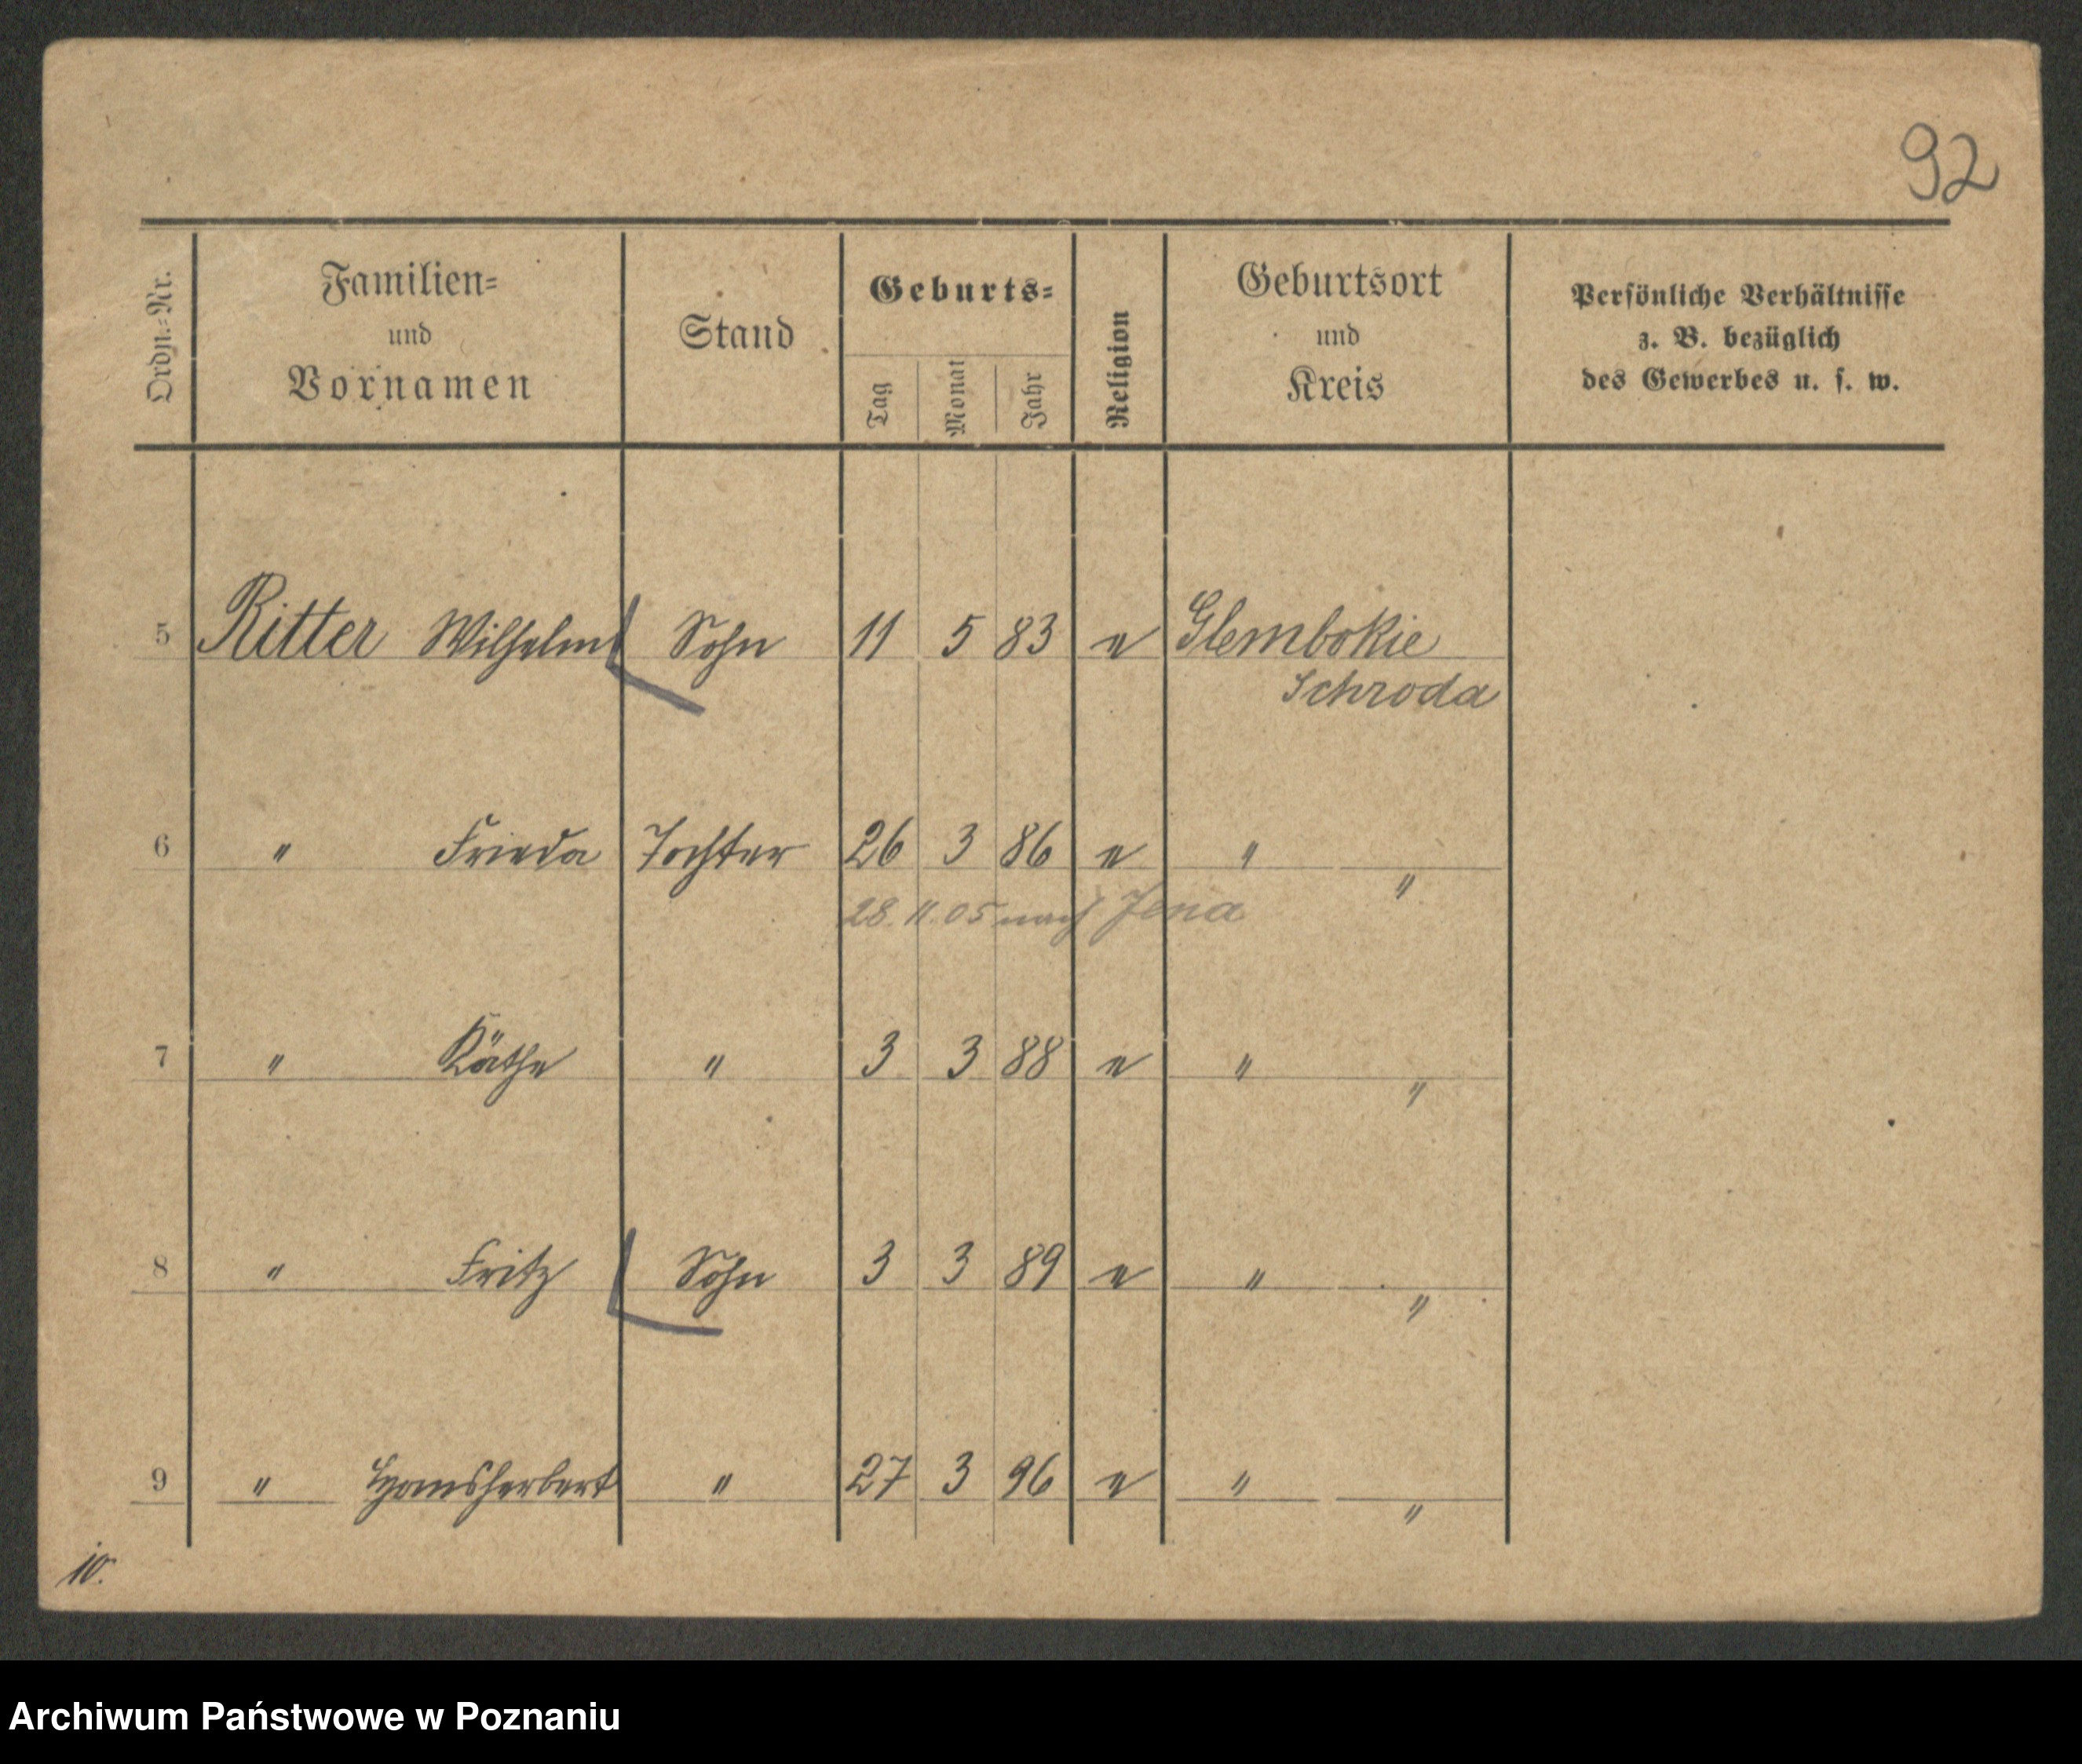 92
Ordn.-Nr.
Familien-
und
Vornamen
Stand
Geburts-
Tag
Monat
Jahr
Religion
Geburtsort
und
Kreis
Persönliche Verhältnisse
z. B. bezüglich
des Gewerbes u. s. w.
5 Ritter Wilhelm Sohn 11 5 83 e Glembokie
Schroda
6 " Frieda Tochter 26 3 86 e " "
28. 11. 05 nach Jena
7 " Käthe " 3 3 88 e " "
8 " Fritz Sohn 3 3 89 e " "
9 " Hansherbert " 27 3 96 e " "
10.
Archiwum Państwowe w Poznaniu